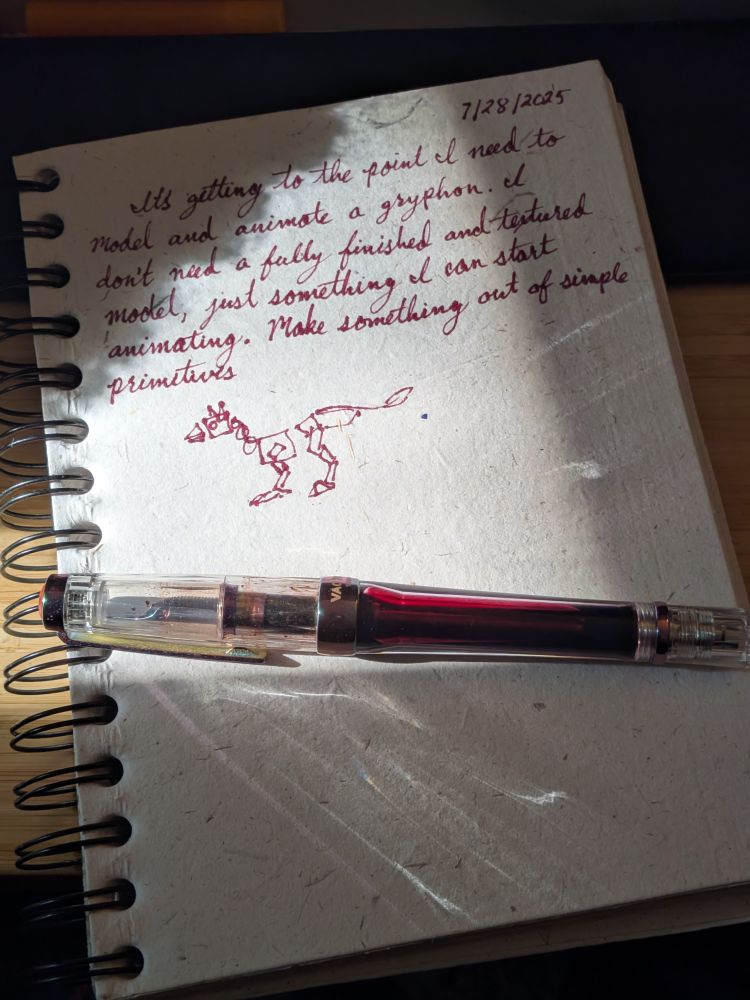 7/28/2025
It's getting to the point I need to
model and animate a gryphon. I
don't need a fully finished and textured
model, just something I can start
animating. Make something out of simple
primitives